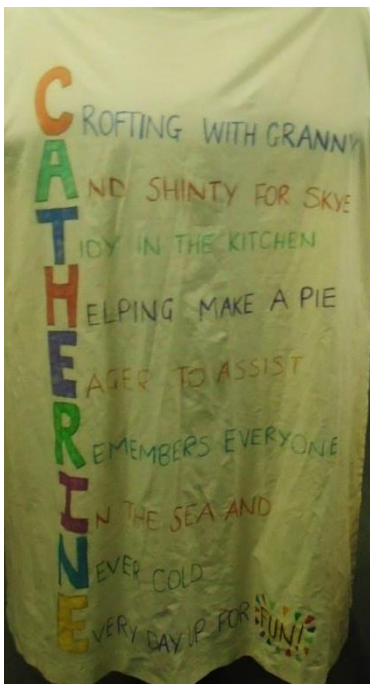 CROFTING WITH GRANNY
AND SHINTY FOR SKYE
TIDY IN THE KITCHEN
HELPING MAKE A PIE
EAGER TO ASSIST
REMEMBERS EVERYONE
IN THE SEA AND
NEVER COLD
EVERY DAY UP FOR FUN!